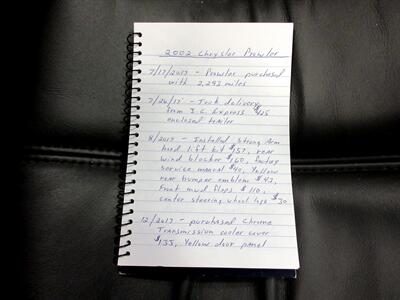 2002 Chrysler Prowler
7/17/2017 - Prowler purchased
with 2,293 miles
7/26/17 - Took delivery
from J.C. Express $425
enclosed trailer
8/2017 - Installed Strong Arm
hood lift kit $157, rear
wind blocker $160, factory
service manual $40, Yellow
rear bumper emblem $42,
front mud flaps $110,
center steering wheel logo $30
12/2017 - purchased Chrome
Transmission cooler cover
$135, Yellow door panel